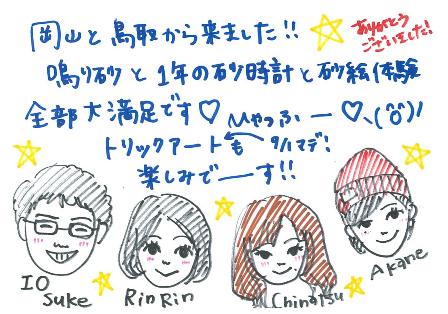 岡山と鳥取から来ました!!
ありがとう
ございました!
鳴り砂と1年の砂時計と砂絵体験
全部大満足です♡ ひゃっふー♡
トリックアートも 9/1マデ!
楽しみでーす!!
IO
Suke
RinRin
Chinatsu
Akane